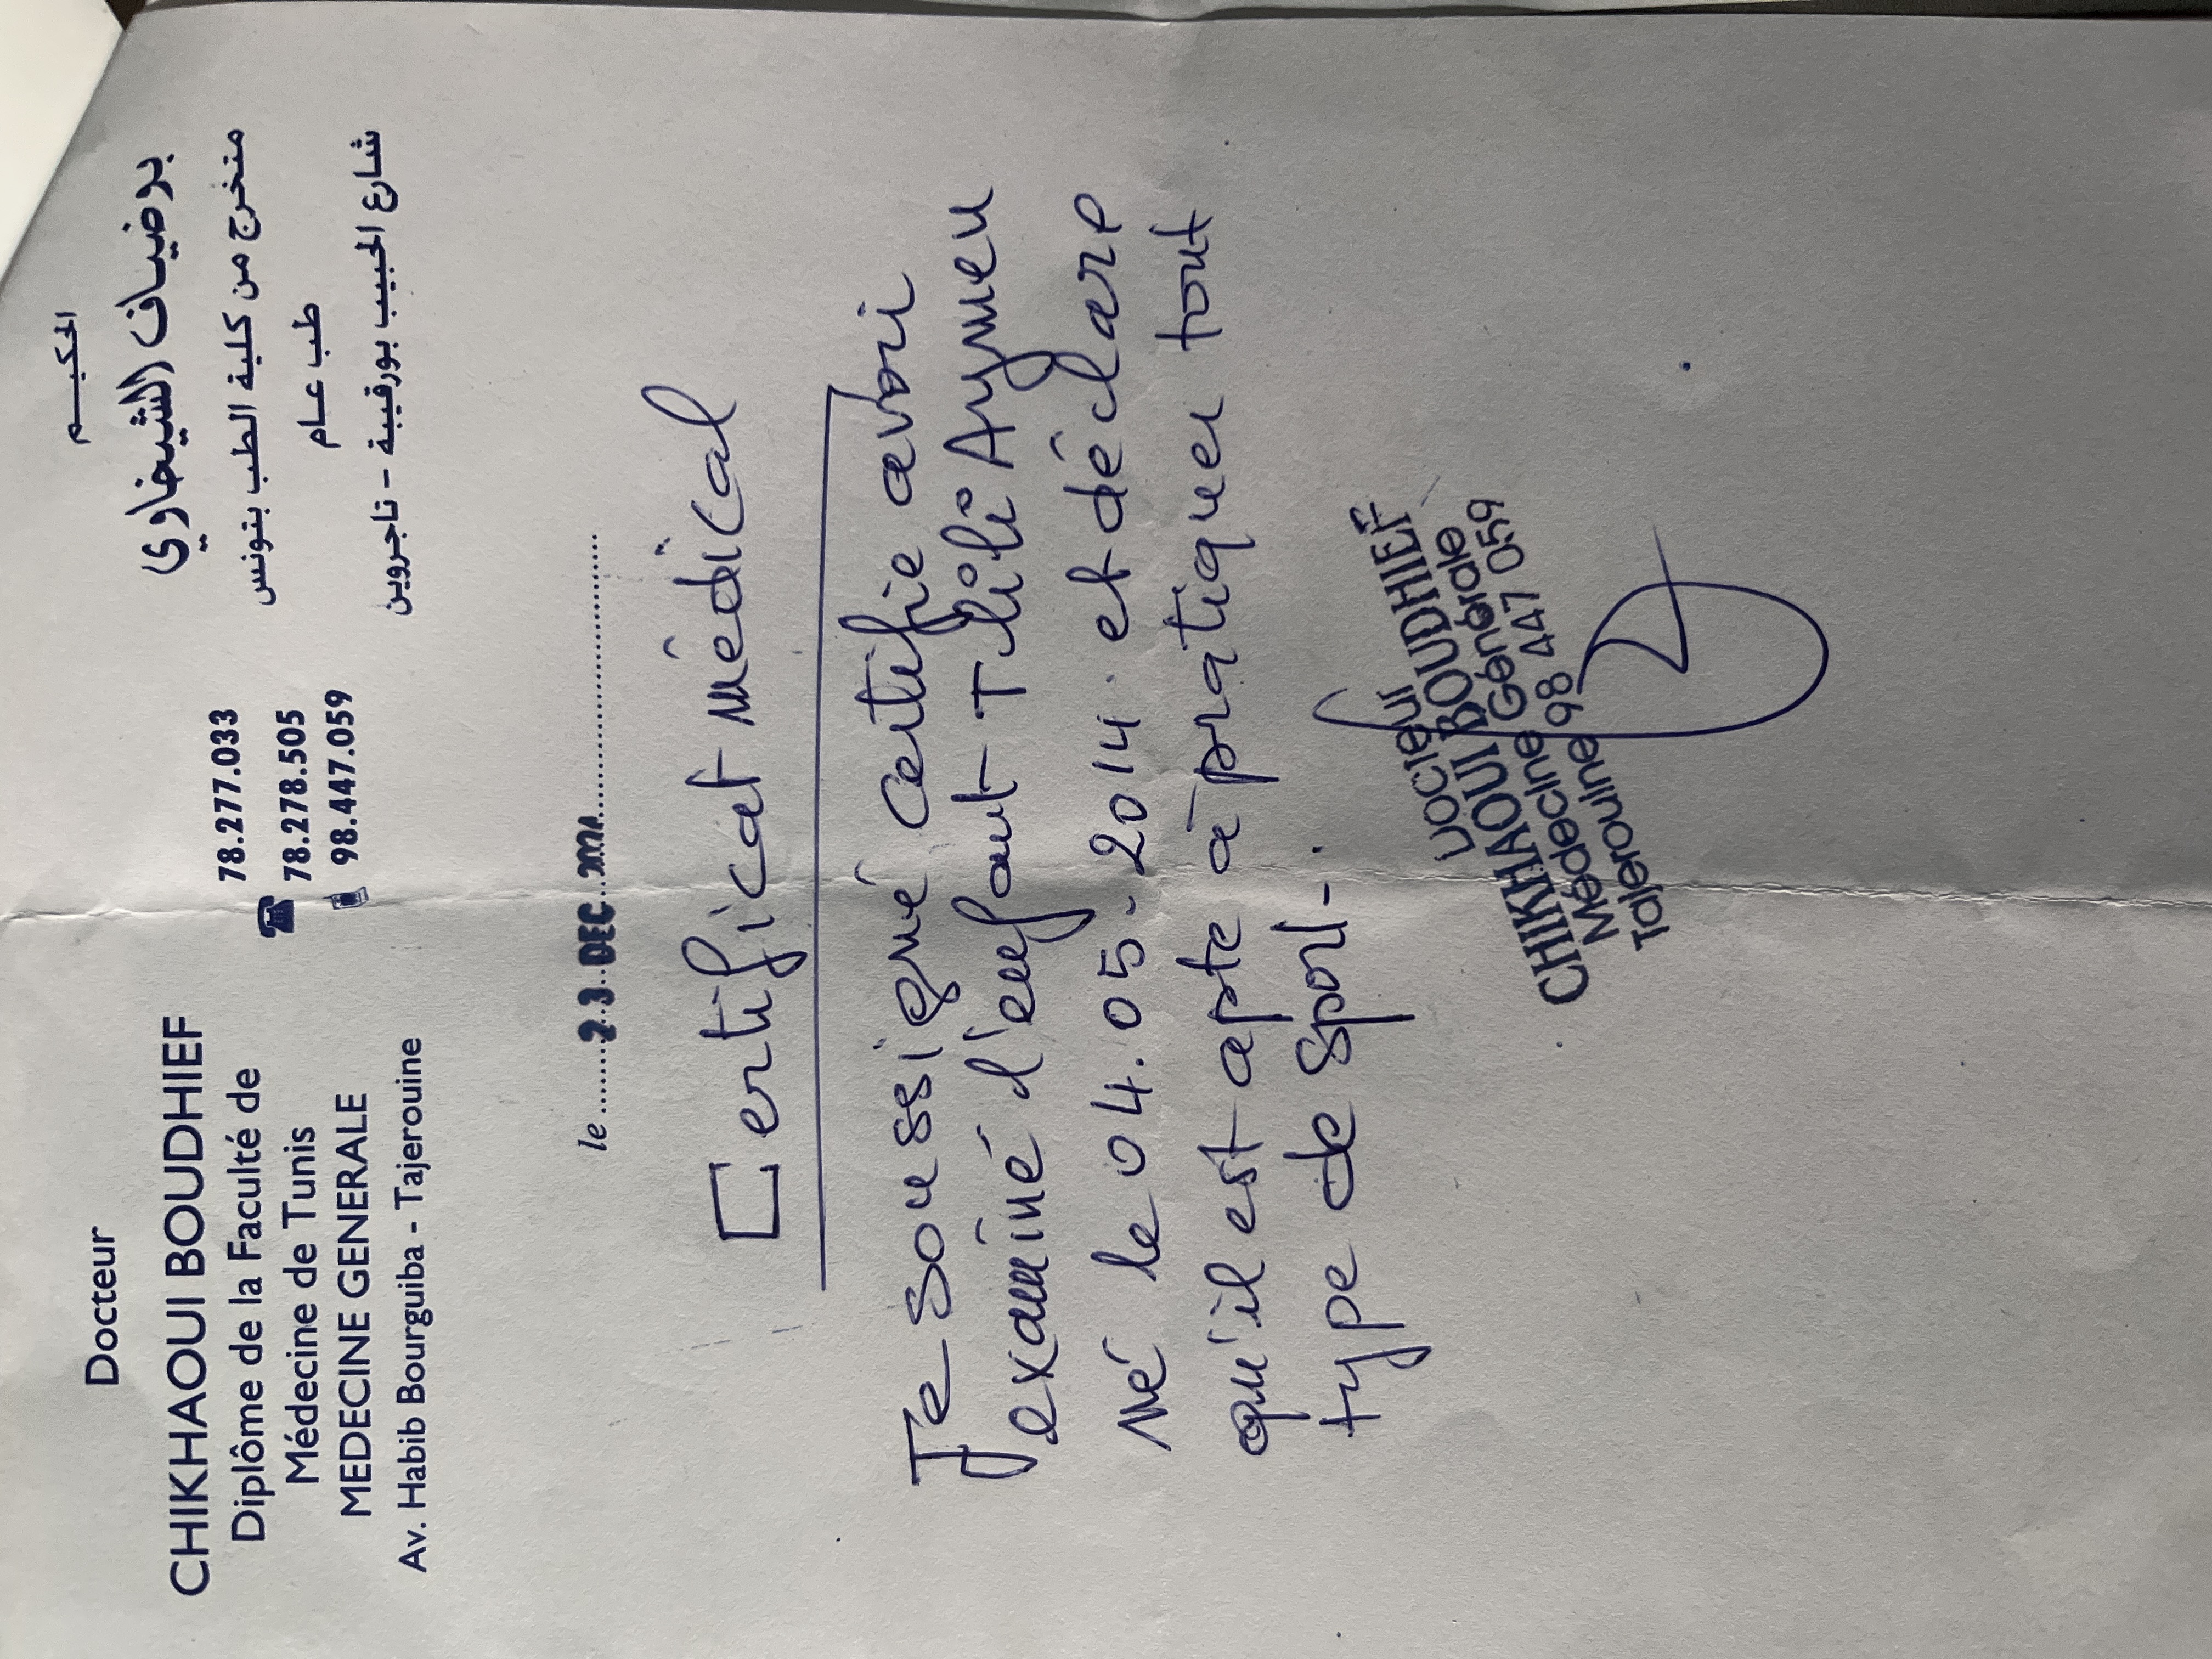 Docteur
CHIKHAOUI BOUDHIEF
Diplôme de la Faculté de
Médecine de Tunis
MEDECINE GENERALE
Av. Habib Bourguiba - Tajerouine
78.277.033
78.278.505
98.447.059
الحكيم
بوضياف الشيخاوي
متخرج من كلية الطب بتونس
طب عام
شارع الحبيب بورقيبة - تاجروين
le 23 DEC
Certificat Médical
Je soussigné certifie avoi
examiné l'enfant Tlili Aymen
Né le 04.05.2014 et déclare
qu'il est apte à pratiquer tout
type de sport.
Docteur
CHIKHAOUI BOUDHIEF
Médecine Générale
Tajerouine 98 447 059